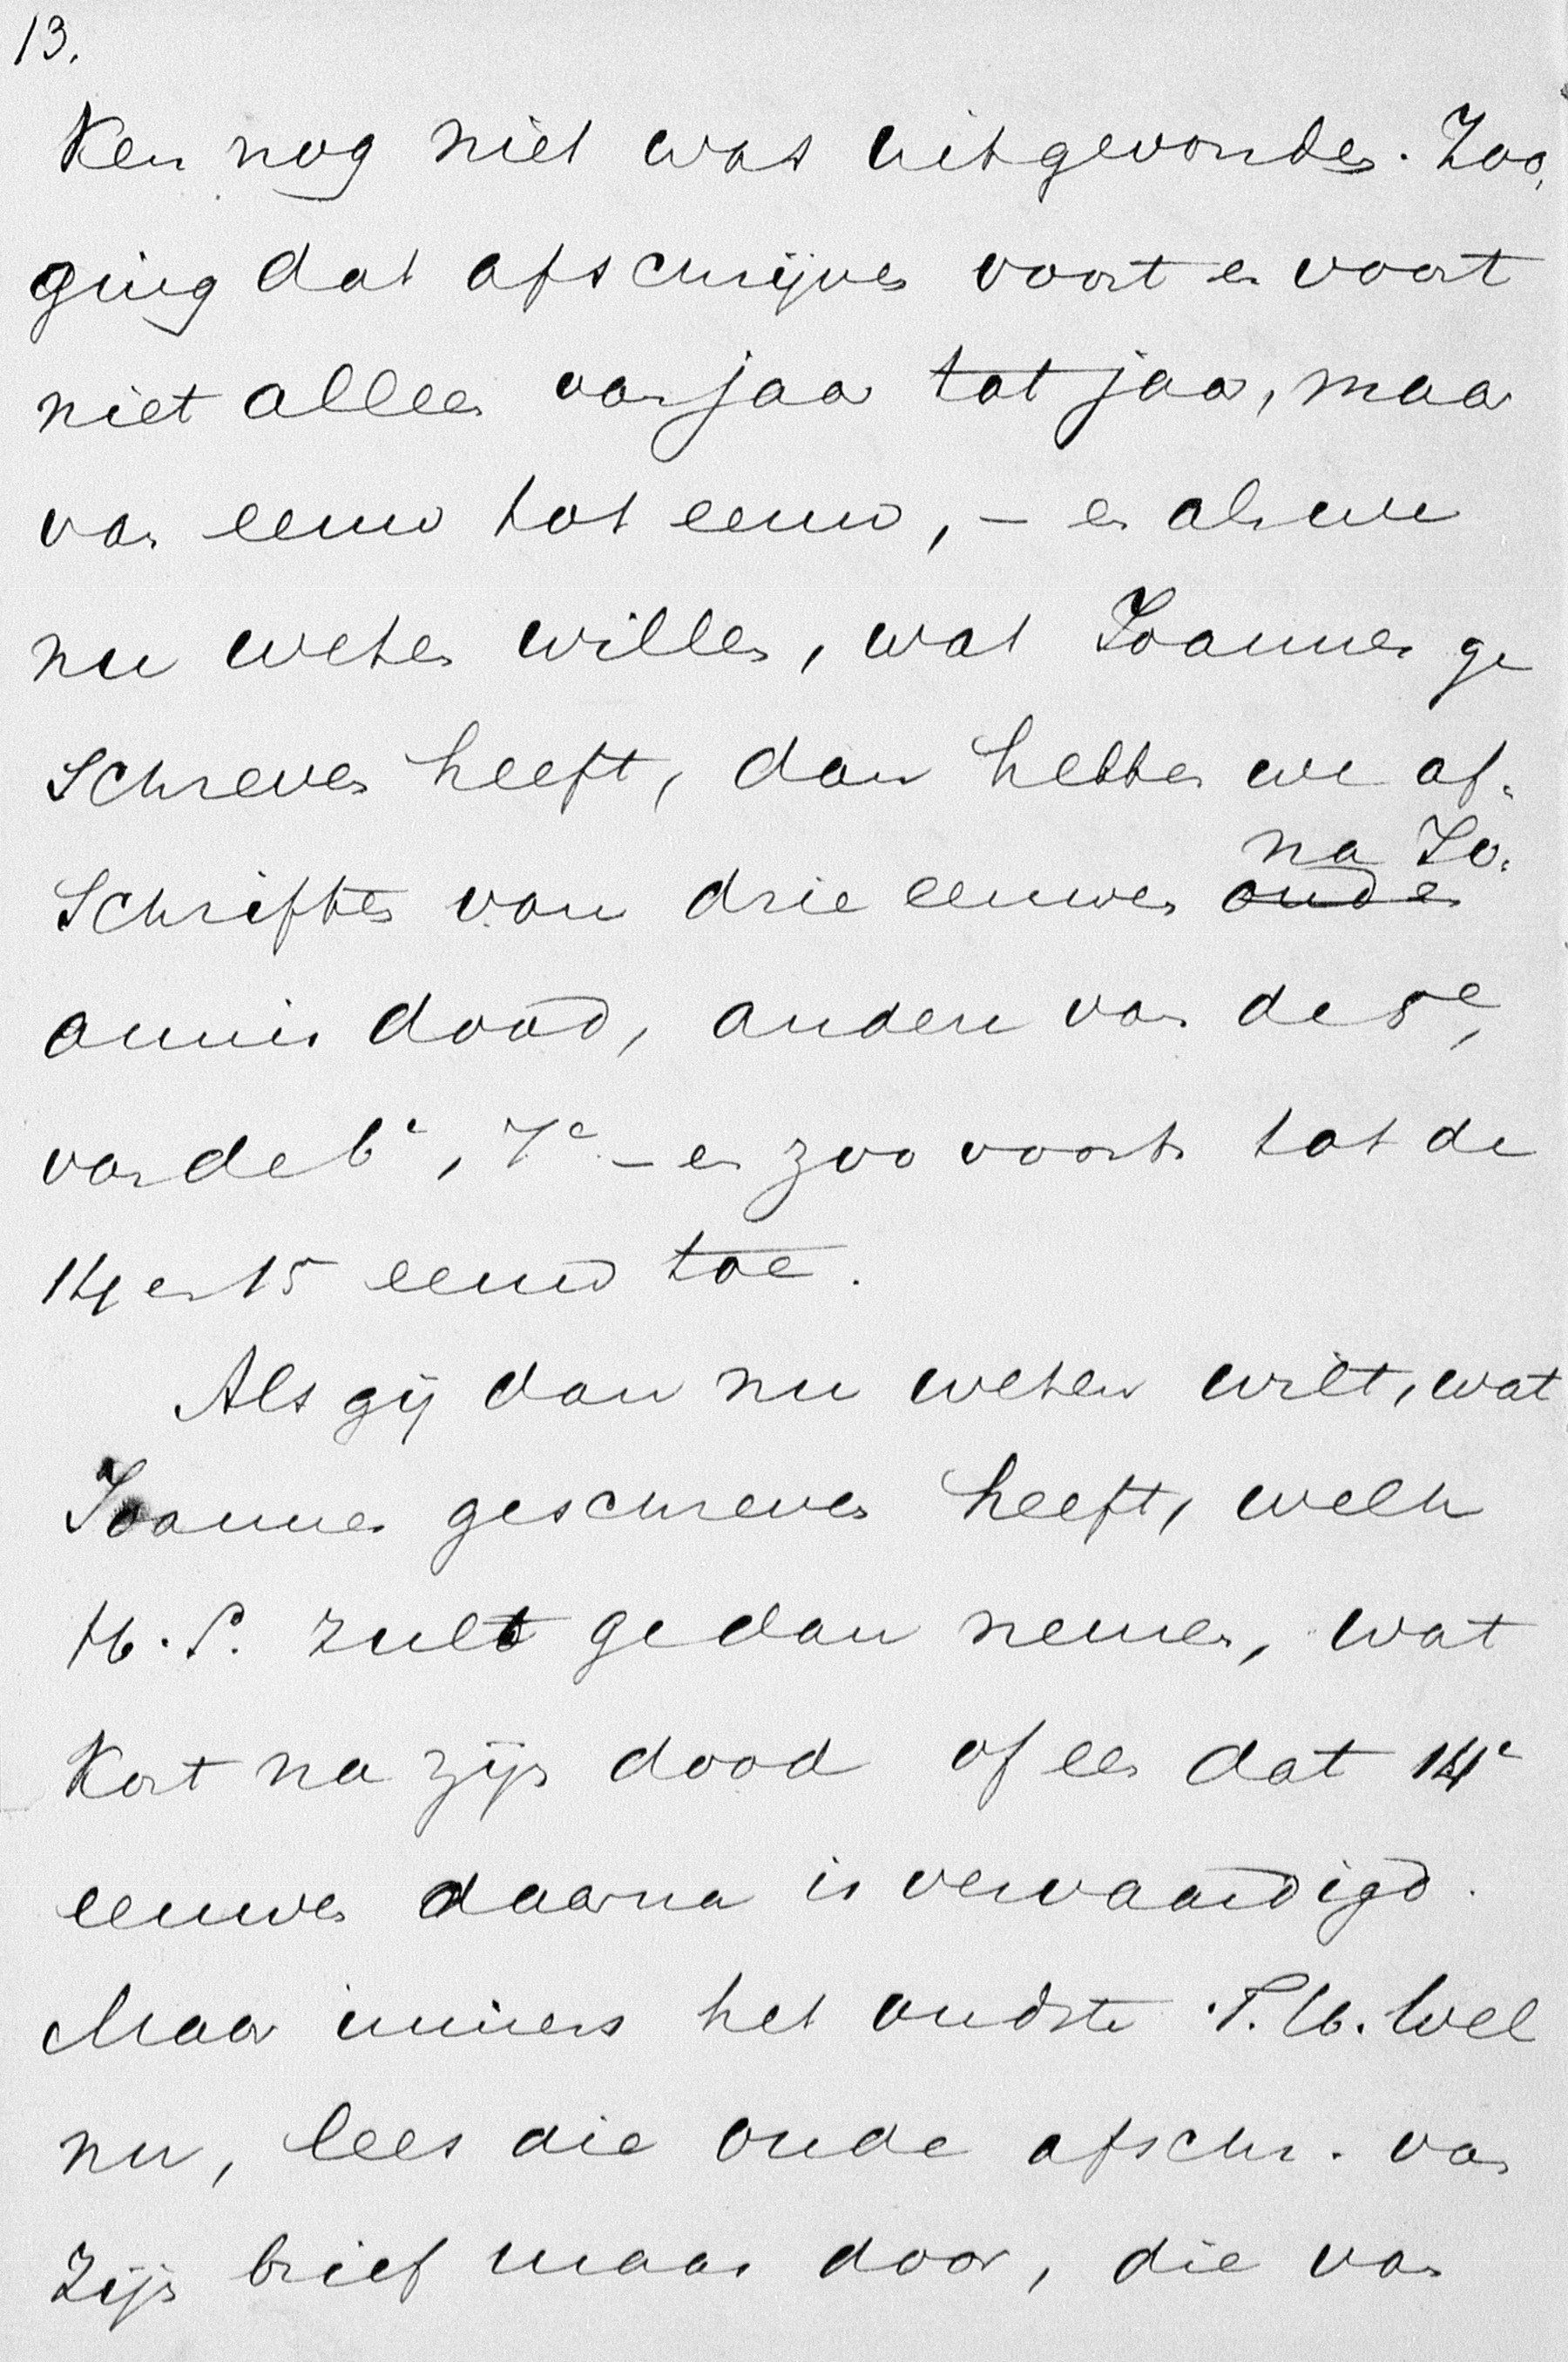 13.
ken nog niet was uitgevonden. Zoo
ging dat afschrijven voort en voort
niet alleen van jaar tot jaar, maar
van eeuw tot eeuw, – en als we
nu weten willen, wat Joannes ge
schreven heeft, dan hebben we af-
na Jo-
schriften van drie eeuwen ouder
annes dood, andere van de 5e,
van de 6e, 7e – en zoo voorts tot de
14 en 15 eeuw toe.
Als gij dan nu weten wilt, wat
Joannes geschreven heeft, welk
H.S. zult ge dan nemen, wat
kort na zijn dood of een dat 14e
eeuwen daarna is vervaardigd.
Maar immers het oudste S.H. Wel
nu, lees die oude afschr. van
zijn brief maar door, die van